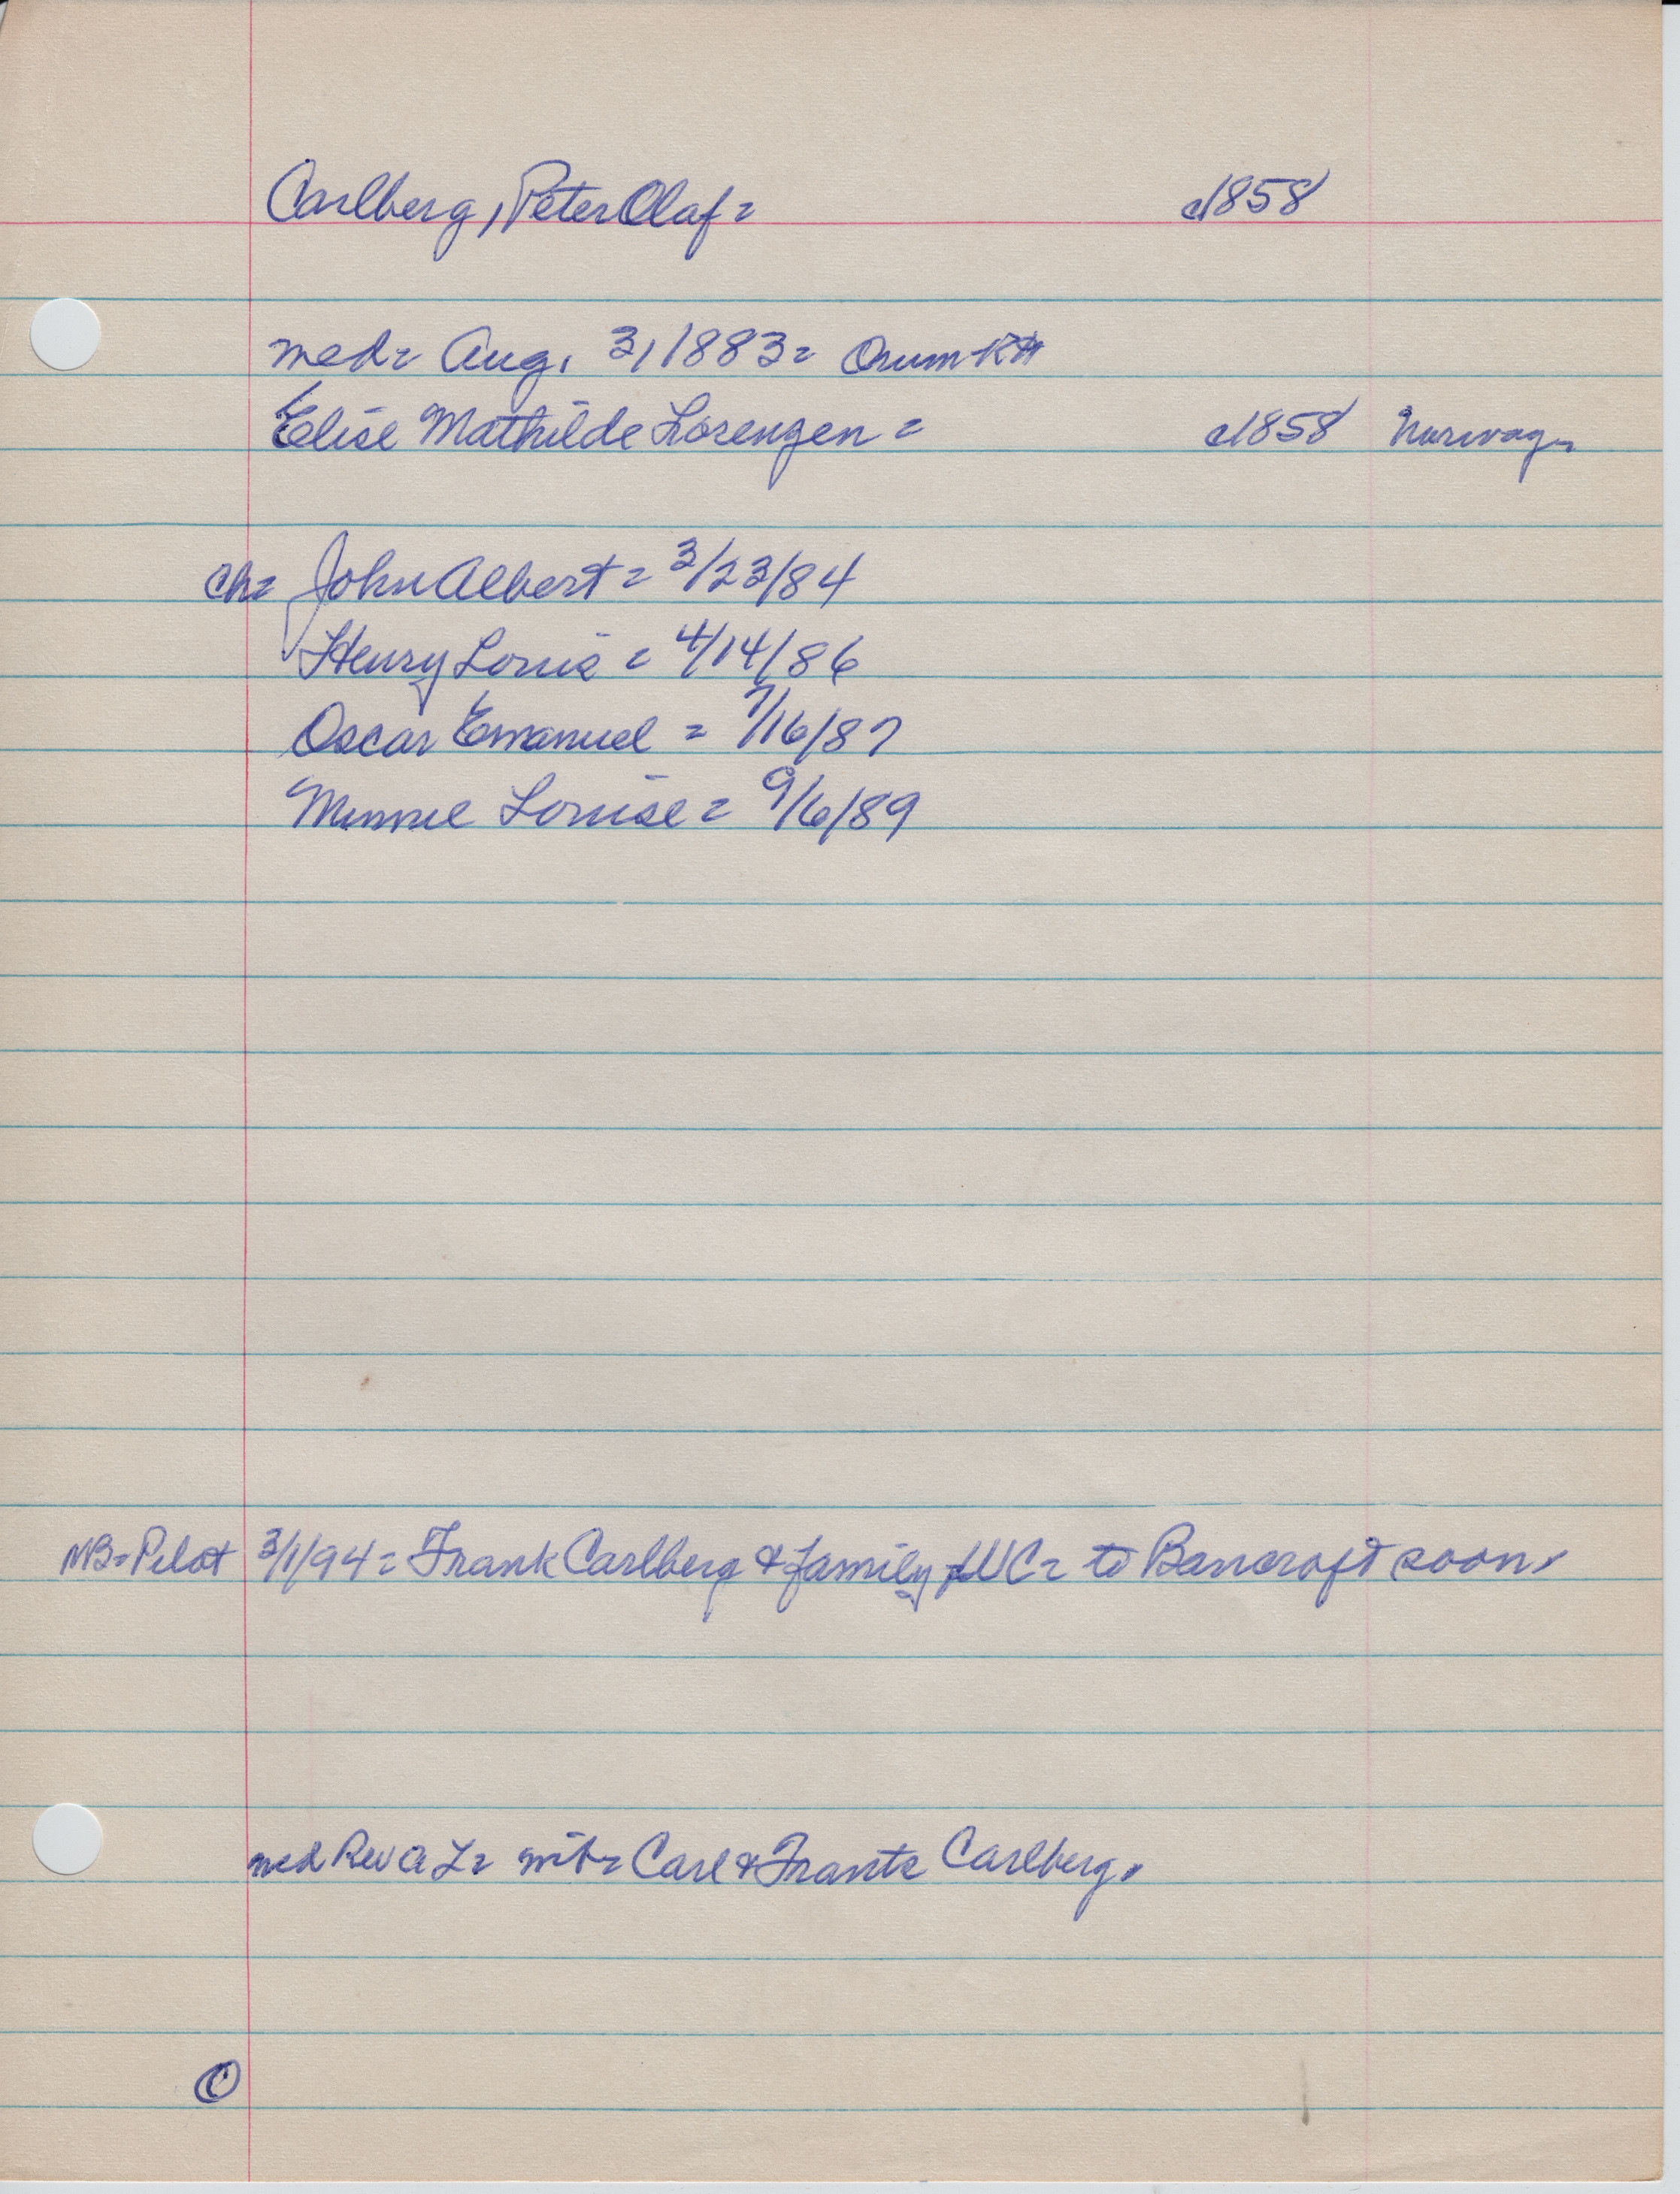 Carlberg, Peter Olaf = c1858
med = Aug. 3, 1883 = Orum
Elise Mathilde Lorenzen = c1858 Norway
ch = John Albert = 3/23/84
Henry Louis = 4/14/86
Oscar Emanuel = 7/16/87
Minnie Louise = 9/6/89
NB = Pilot 3/1/94 = Frank Carlberg & family = to Bancroft soon.
med Rev A L = wit = Carl & Frants Carlberg.
©